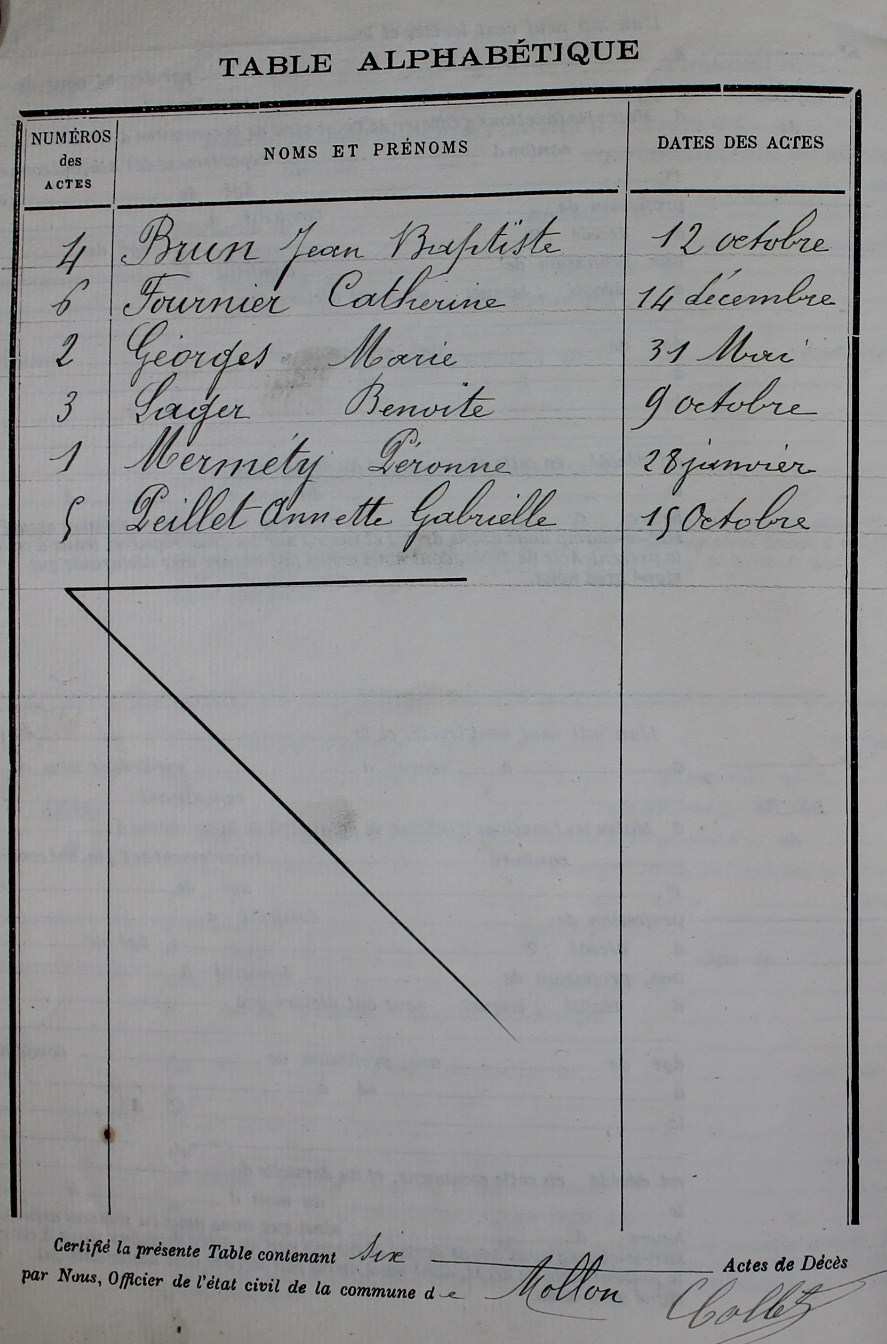 TABLE ALPHABÉTIQUE
NUMÉROS des ACTES NOMS ET PRÉNOMS DATES DES ACTES
4 Brun Jean Baptiste 12 octobre
6 Fournier Catherine 14 décembre
2 Géorges Marie 31 Mai
3 Lager Benoite 9 octobre
1 Merméty Péronne 28 janvier
5 Peillet Annette Gabrielle 15 Octobre
Certifié la présente Table contenant six Actes de Décès
par Nous, Officier de l'état civil de la commune de Mollon